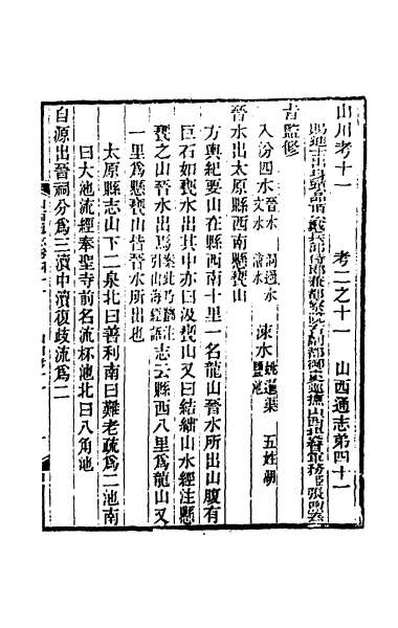 山川考十一 考二之十一 山西通志第四十一
賜進士出身頭品頂戴兵部侍郎兼都察院右副都御史巡撫山西提督軍務
旨監修
入汾四水 晉水 洞過水 文水 涑水 姚暹渠 鹽池 五姓湖
晉水出太原縣西南懸甕山
方輿紀要山在縣西南十里一名龍山晉水所出山腹有
巨石如甕水出其中亦曰汲甕山又曰結絀山水經注懸
甕之山晉水出焉 志云縣西八里爲龍山又
一里爲懸甕山皆晉水所出也
太原縣志山下二泉北曰善利南曰難老疏爲二池南
曰大池流經奉聖寺前名流杯池北曰八角池
自源出晉祠分爲三瀆中瀆復歧流爲二